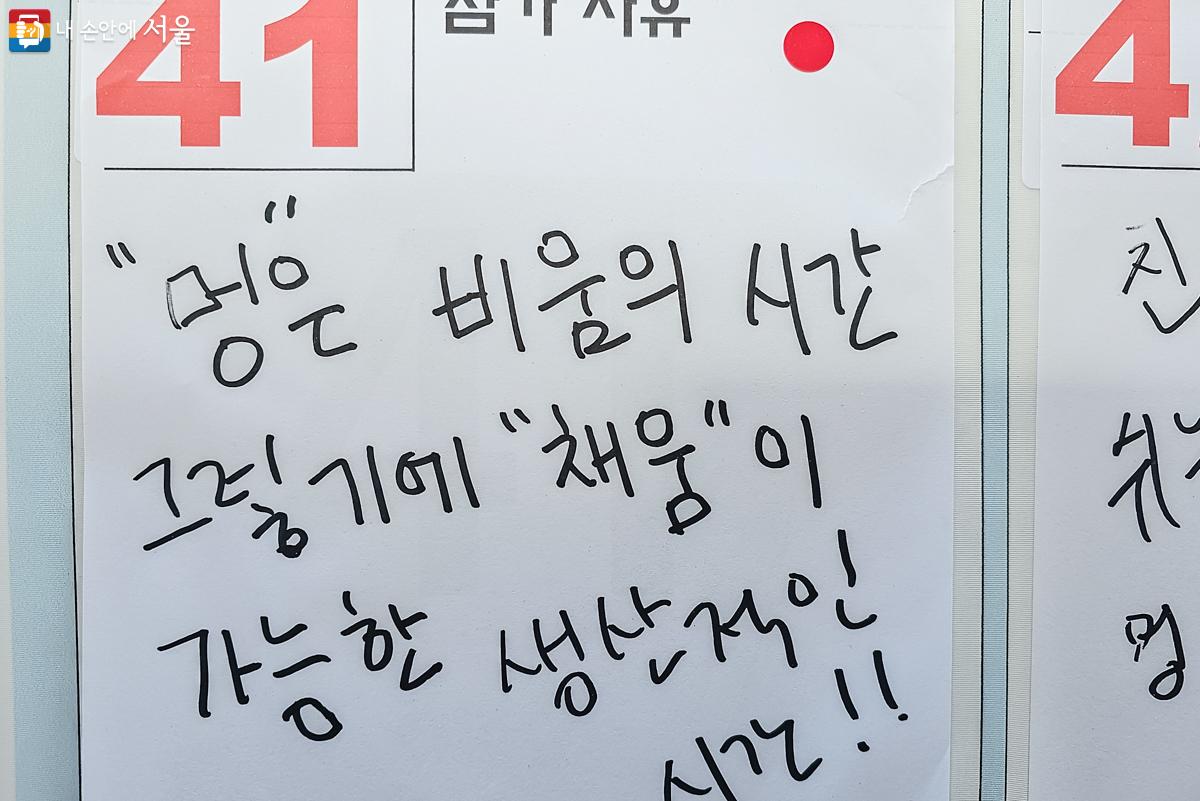 내 손안에 서울
41
참가 사유
4
"멍"은 비움의 시간
그렇기에 "채움"이
가능한 생산적인
시간!!
진
쉬
멍